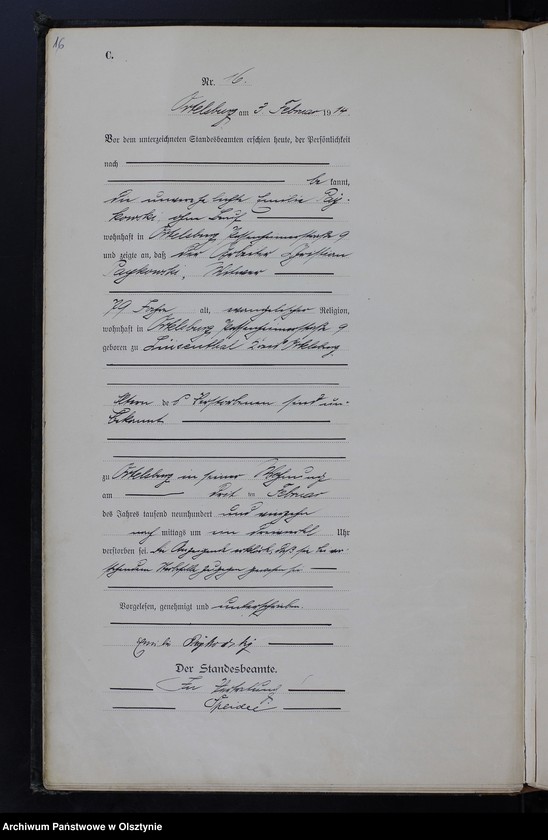 16
C.
Nr. 16.
Ortelsburg am 3 Februar 1914.
Vor dem unterzeichneten Standesbeamten erschien heute, der Persönlichkeit
nach
be kannt,
die unverehelichte Emilie
ohne Beruf
wohnhaft in Ortelsburg, Passenheimerstraße 9
und zeigte an, daß der Arbeiter Christian
, Witwer
79 Jahre alt, evangelischer Religion,
wohnhaft in Ortelsburg, Passenheimerstraße 9
geboren zu Kreis Ortelsburg
Eltern des Verstorbenen sind un-
bekannt
zu Ortelsburg in seiner Wohnung
am drei ten Februar
des Jahres tausend neunhundert und vierzehn
nach mittags um Uhr
verstorben sei. Die Anzeigende erklärte, daß sie bei
Sterbefalle zugegen gewesen sei
Vorgelesen, genehmigt und unterschrieben.
Der Standesbeamte.
In Vertretung
Archiwum Państwowe w Olsztynie